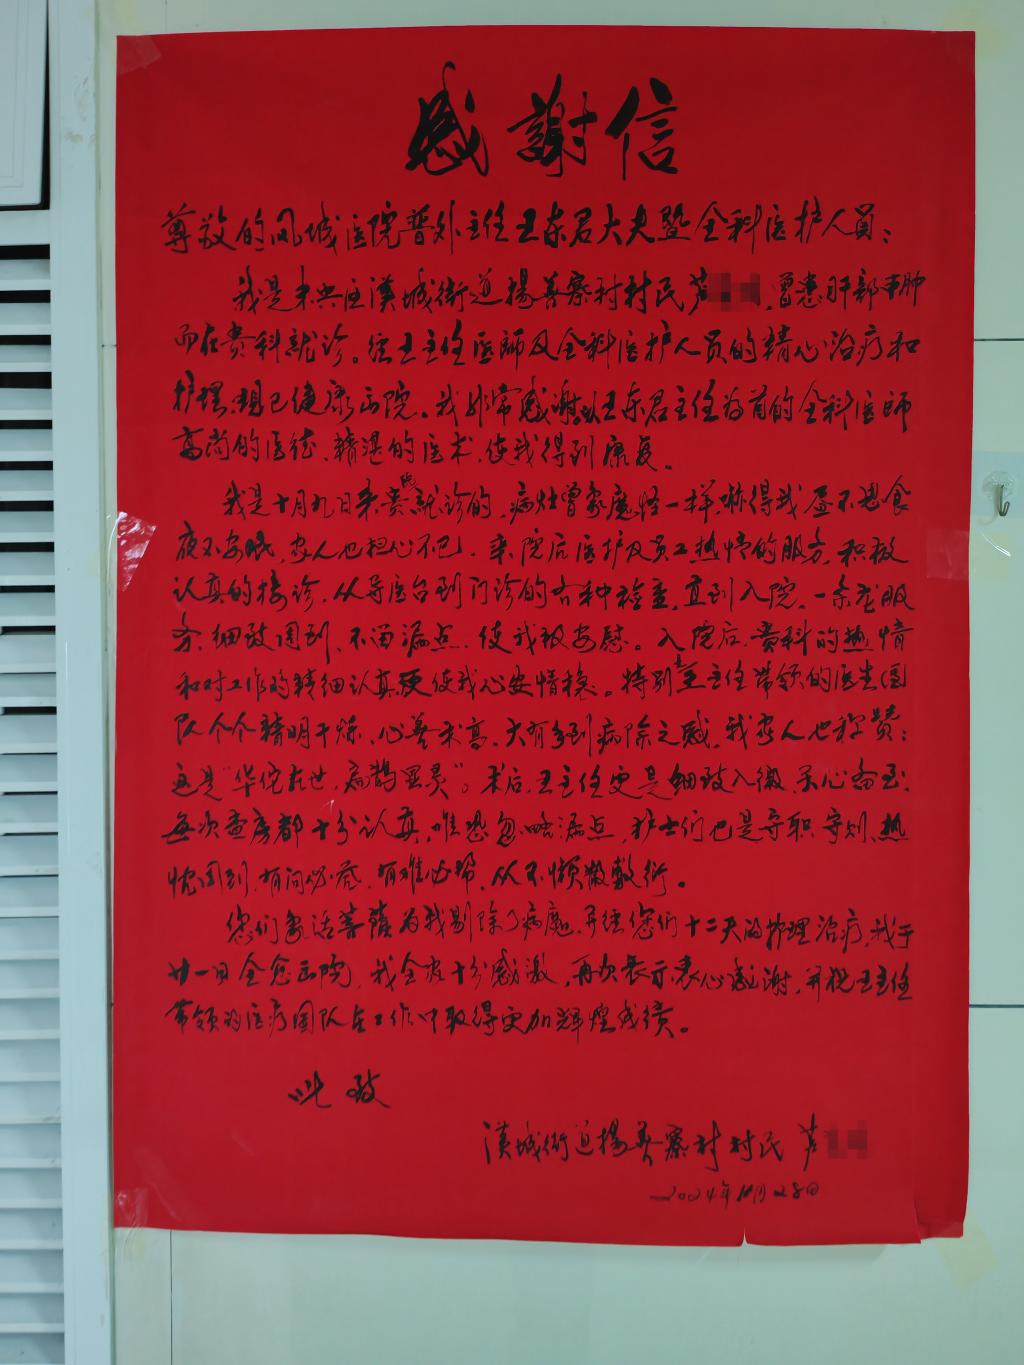 感謝信
尊敬的凤城医院普外主任卫东君大夫暨全科医护人员：
我是未央区漢城街道揚善寨村村民芦，曾患肝部手肿
而在贵科就诊。经卫主任医师及全科医护人员的精心治疗和
护理，现已健康出院。我非常感谢以卫东君主任为首的全科医师
高尚的医德、精湛的医术，使我得到康复。
我是十月九日来贵院就诊的，病灶曾象魔怪一样，嚇得我昼不思食
夜不安眠，家人也担心不已。来院后医护及员工热情的服务，积极
认真的接诊，从导医台到门诊的各种检查，直到入院，一条龙服
务，细致周到，不留漏点，使我极安慰。入院后，贵科的热情
和对工作的精细认真更使我心安情稳。特别是主任带领的医生团
队个个精明干炼、心善术高，大有手到病除之感，我家人也称赞：
这是“华佗在世，扁鹊显灵”。术后，卫主任更是细致入微，关心备至；
每次查房都十分认真，唯恐忽略漏点，护士们也是守职守划，热
忱周到，有问必答，有难必帮，从不懒散敷衍。
您们象活菩萨为我剔除了病魔，并经您们十二天的护理治疗，我于
廿一日全愈出院，我全家十分感激，再次表示衷心感谢，并祝卫主任
带领的医疗团队在工作中取得更加辉煌成绩。
此致
漢城街道揚善寨村村民 芦
2024年10月28日